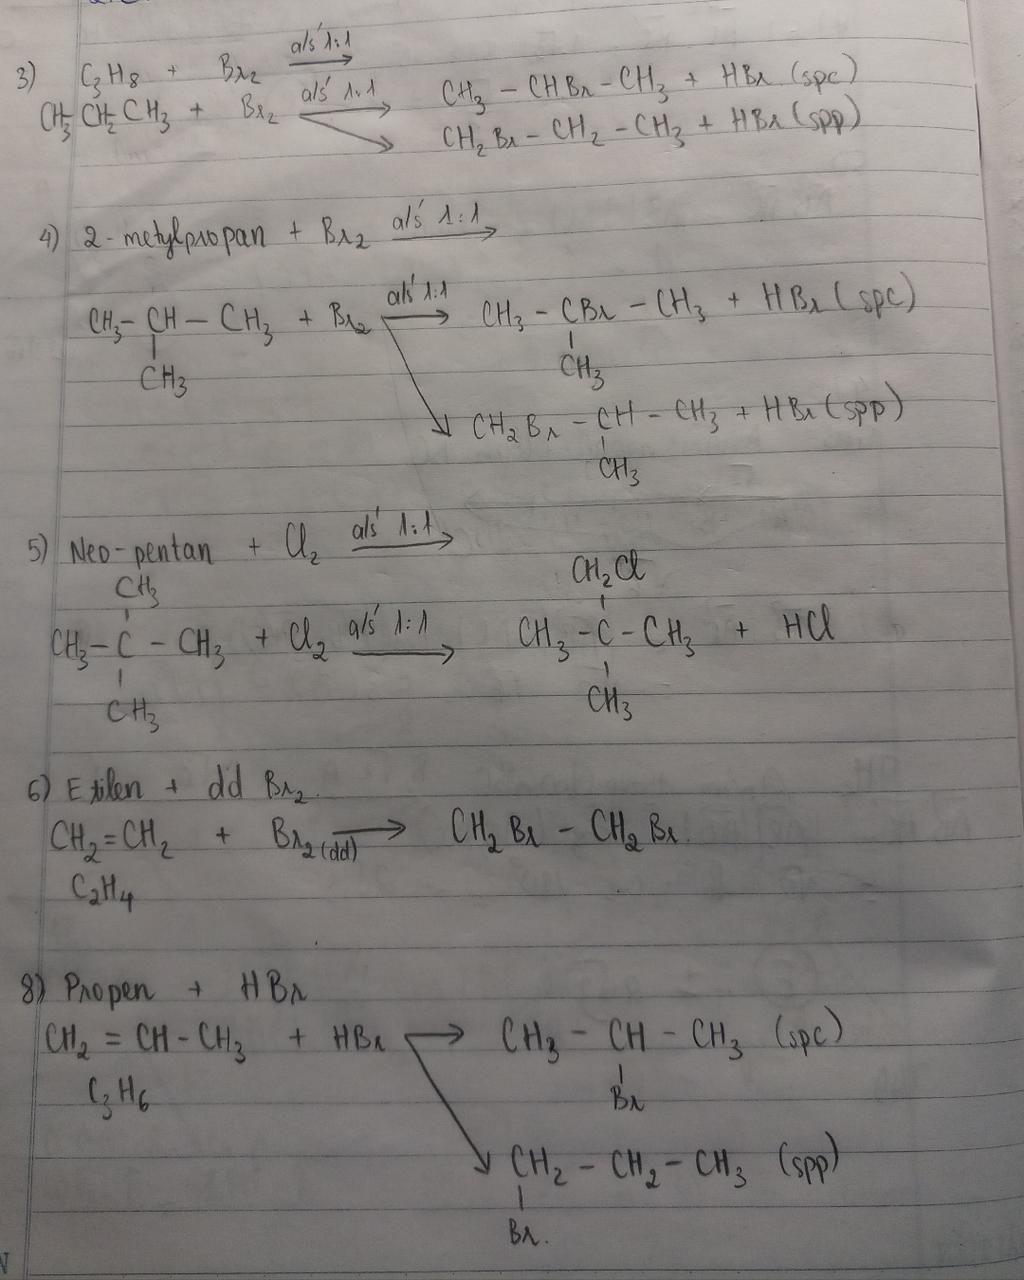 3) C3H8 + Br2 a/s' 1:1
CH3 CH2 CH3 + Br2 a/s' 1:1 CH3 - CHBr - CH3 + HBr (spc)
CH2Br - CH2 - CH3 + HBr (spp)
4) 2-metylpropan + Br2 a/s' 1:1
CH3 - CH - CH3 + Br2 a/s' 1:1 CH3 - CBr - CH3 + HBr (spc)
CH3 CH3
CH2Br - CH - CH3 + HBr (spp)
CH3
5) Neo-pentan + Cl2 a/s' 1:1
CH3 CH2Cl
CH3 - C - CH3 + Cl2 a/s' 1:1 CH3 - C - CH3 + HCl
CH3 CH3
6) Etilen + dd Br2.
CH2=CH2 + Br2(dd) → CH2Br - CH2Br.
C2H4
8) Propen + HBr
CH2 = CH - CH3 + HBr → CH3 - CH - CH3 (spc)
C3H6 Br
CH2 - CH2 - CH3 (spp)
Br.